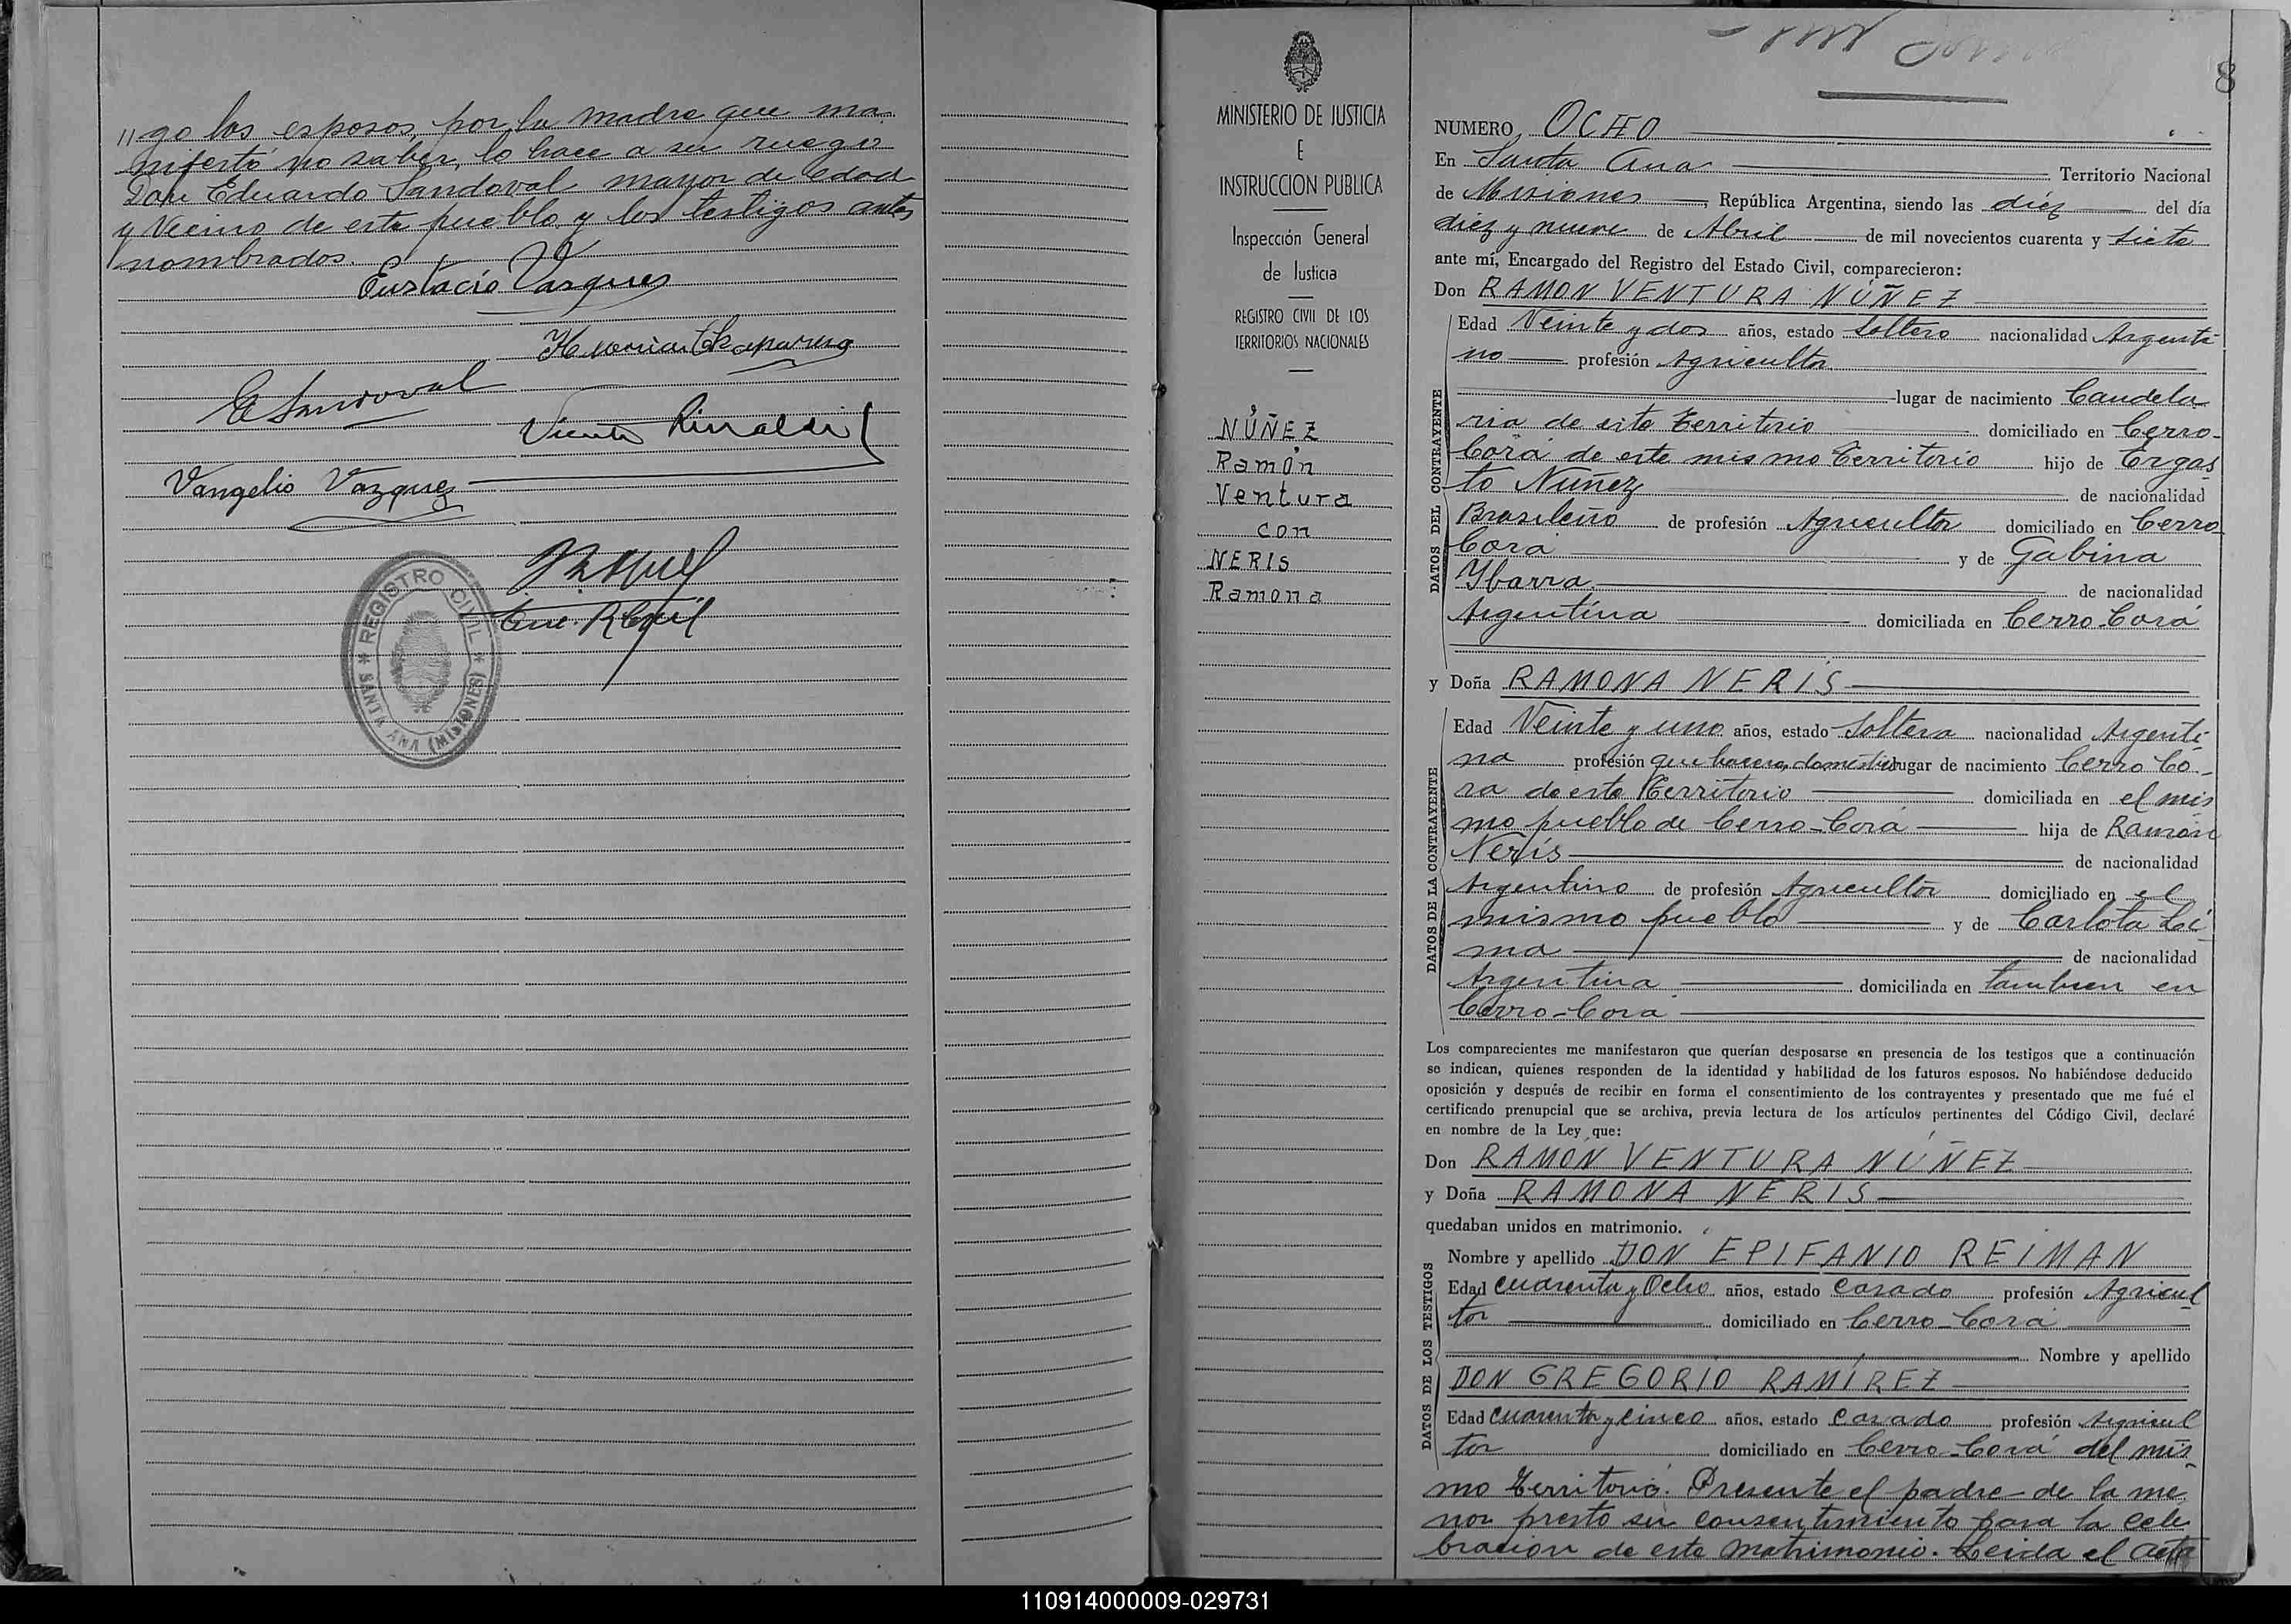 "go los esposos, por la madre que ma-
nifestó no saber, lo hace a su ruego
Don Eduardo Sandoval mayor de edad
y Vecino de este pueblo y los testigos antes
nombrados.
Eustacio Vasques
E Sandoval
Vicente Rinaldi
Vangelio Vazquez
Enc. R Civil
* REGISTRO CIVIL *
SANTA ANA (MISIONES)
MINISTERIO DE JUSTICIA
E
INSTRUCCION PUBLICA
Inspección General
de Justicia
REGISTRO CIVIL DE LOS
TERRITORIOS NACIONALES
8
NÚÑEZ
Ramón
Ventura
con
NERIS
Ramona
8
NUMERO, OCHO
En Santa Ana Territorio Nacional
de Misiones, República Argentina, siendo las diéz del día
diez y nueve de Abril de mil novecientos cuarenta y siete
ante mí, Encargado del Registro del Estado Civil, comparecieron:
Don RAMON VENTURA NÚÑEZ
DATOS DEL CONTRAYENTE
Edad Veinte y dos años, estado Soltero nacionalidad Argenti-
no profesión Agricultor
lugar de nacimiento Candela-
ria de este Territorio domiciliado en Cerro-
Corá de este mismo Territorio hijo de Ergas
to Núñez de nacionalidad
Brasileño de profesión Agricultor domiciliado en Cerro-
Corá y de Gabina
Ybarra de nacionalidad
Argentina domiciliada en Cerro-Corá
y Doña RAMONA NERIS
DATOS DE LA CONTRAYENTE
Edad Veinte y uno años, estado Soltera nacionalidad Argenti-
na profesión que haceres domésticos lugar de nacimiento Cerro Co-
ra de este Territorio domiciliada en el mis
mo pueblo de Cerro-Corá hija de Ramón
Neris de nacionalidad
Argentino de profesión Agricultor domiciliado en el
mismo pueblo y de Carlota Li-
ma de nacionalidad
Argentina domiciliada en tambien en
Cerro-Cora
Los comparecientes me manifestaron que querían desposarse en presencia de los testigos que a continuación
se indican, quienes responden de la identidad y habilidad de los futuros esposos. No habiéndose deducido
oposición y después de recibir en forma el consentimiento de los contrayentes y presentado que me fué el
certificado prenupcial que se archiva, previa lectura de los artículos pertinentes del Código Civil, declaré
en nombre de la Ley que:
Don RAMÓN VENTURA NÚÑEZ
y Doña RAMONA NERIS
quedaban unidos en matrimonio.
DATOS DE LOS TESTIGOS
Nombre y apellido DON EPIFANIO REIMAN
Edad cuarenta y Ocho años, estado Casado profesión Agricul
tor domiciliado en Cerro-Corá
Nombre y apellido
DON GREGORIO RAMÍREZ
Edad cuarenta y cinco años, estado Casado profesión Agricul
tor domiciliado en Cerro-Corá del mis-
mo Territorio. Presente el padre de la me-
nor presto su consentimiento para la cele
bracion de este matrimonio. Leida el acta
110914000009-029731